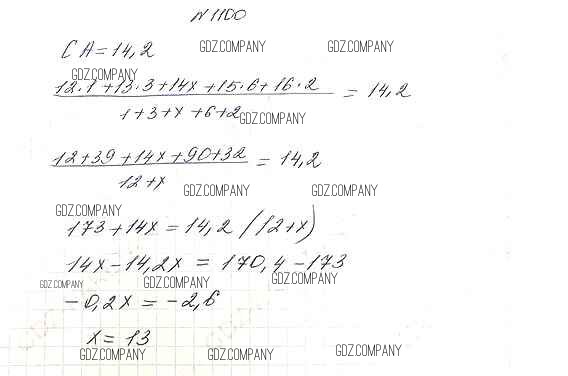 N 1100
CA = 14,2
GDZ.COMPANY GDZ.COMPANY
GDZ.COMPANY
12·1 + 13·3 + 14x + 15·6 + 16·2 = 14,2
1 + 3 + x + 6 + 2
GDZ.COMPANY
12 + 39 + 14x + 90 + 32 = 14,2
12 + x
GDZ.COMPANY GDZ.COMPANY
GDZ.COMPANY
173 + 14x = 14,2 (12 + x)
14x - 14,2x = 170,4 - 173
GDZ.COMPANY GDZ.COMPANY GDZ.COMPANY
-0,2x = -2,6
x = 13
GDZ.COMPANY GDZ.COMPANY GDZ.COMPANY